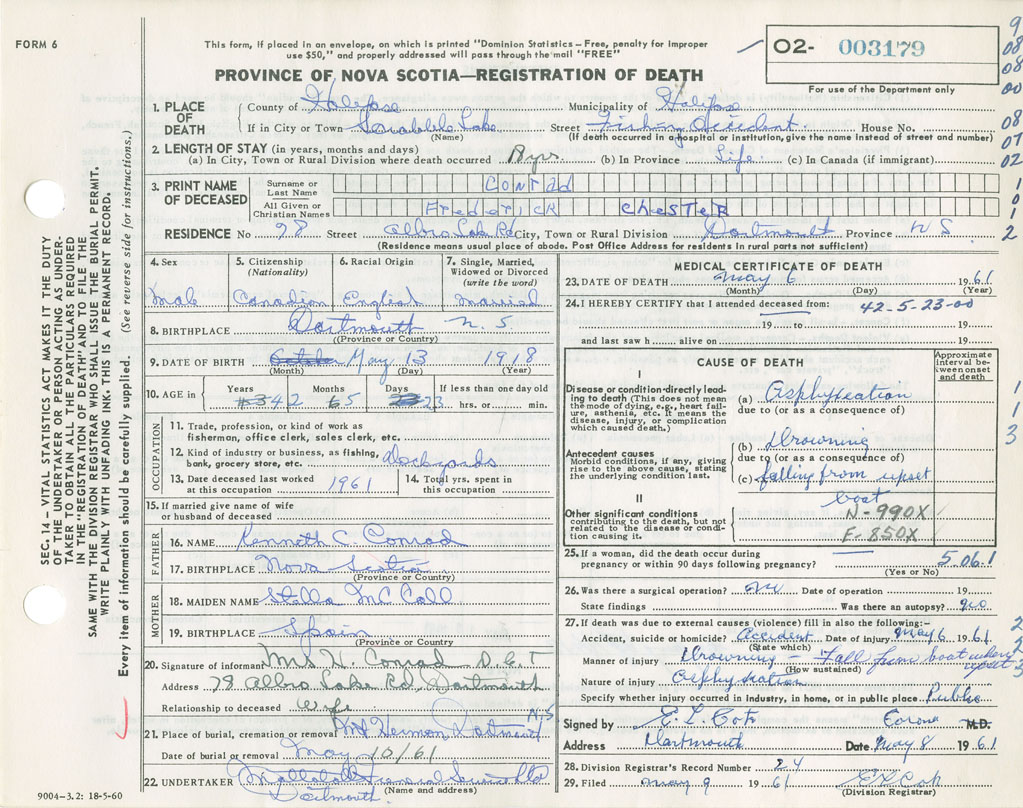 FORM 6
This form, if placed in an envelope, on which is printed "Dominion Statistics – Free, penalty for improper
use $50," and properly addressed will pass through the mail "FREE"
02- 003179
For use of the Department only
PROVINCE OF NOVA SCOTIA—REGISTRATION OF DEATH
9
08
08
00
08
07
02
1
0
1
2
1. PLACE OF DEATH
County of Halifax Municipality of Halifax
If in City or Town Lake Street Fishing Accident House No.
(Name) (If death occurred in a hospital or institution, give the name instead of street and number)
2. LENGTH OF STAY (in years, months and days)
(a) In City, Town or Rural Division where death occurred (b) In Province Life (c) In Canada (if immigrant)
3. PRINT NAME OF DECEASED
Surname or Last Name Conrad
All Given or Christian Names FredericK CheSTER
RESIDENCE No 78 Street Albro Lake Rd City, Town or Rural Division Dartmouth Province N S
(Residence means usual place of abode. Post Office Address for residents in rural parts not sufficient)
4. Sex Male
5. Citizenship (Nationality) Canadian
6. Racial Origin English
7. Single, Married, Widowed or Divorced (write the word) married
8. BIRTHPLACE Dartmouth N. S.
(Province or Country)
9. DATE OF BIRTH May 13 1918
(Month) (Day) (Year)
10. AGE in Years 42 Months Days 23 If less than one day old hrs. or min.
OCCUPATION
11. Trade, profession, or kind of work as
fisherman, office clerk, sales clerk, etc.
12. Kind of industry or business, as fishing,
bank, grocery store, etc. Dockyards
13. Date deceased last worked
at this occupation 1961
14. Total yrs. spent in
this occupation
15. If married give name of wife
or husband of deceased
FATHER
16. NAME Kenneth C Conrad
17. BIRTHPLACE Nova Scotia
(Province or Country)
MOTHER
18. MAIDEN NAME Stella McCall
19. BIRTHPLACE Spain
(Province or Country
20. Signature of informant Mrs Conrad
Address 78 Albro Lake Rd, Dartmouth N.S
Relationship to deceased wife
21. Place of burial, cremation or removal Mt Hermon Dartmouth
Date of burial or removal May 10/61
22. UNDERTAKER
(Name and address)
Dartmouth
9004-3.2: 18-5-60
MEDICAL CERTIFICATE OF DEATH
23. DATE OF DEATH May 6 1961
(Month) (Day) (Year)
24. I HEREBY CERTIFY that I attended deceased from: 42-5-23-00
19 to 19
and last saw h alive on 19
CAUSE OF DEATH
Approximate interval between onset and death
I
Disease or condition directly leading to death (This does not mean the mode of dying, e.g., heart failure, asthenia, etc. It means the disease, injury, or complication which caused death.)
(a) Asphyxiation
due to (or as a consequence of)
Antecedent causes
Morbid conditions, if any, giving rise to the above cause, stating the underlying condition last.
(b) Drowning
due to (or as a consequence of)
(c) falling from upset
boat
II
Other significant conditions
contributing to the death, but not related to the disease or condition causing it.
N-990X
E-850X
1
1
3
25. If a woman, did the death occur during
pregnancy or within 90 days following pregnancy? 506.1
(Yes or No)
26. Was there a surgical operation? no Date of operation 19
State findings Was there an autopsy? no
27. If death was due to external causes (violence) fill in also the following:-
Accident, suicide or homicide? Accident Date of injury May 6 1961
(State which)
Manner of injury Drowning – Fall from boat when upset
(How sustained)
Nature of injury Asphyxiation
Specify whether injury occurred in Industry, in home, or in public place Public
2
2
3
Signed by Coroner M.D.
Address Dartmouth Date May 8 1961
28. Division Registrar's Record Number 24
29. Filed May 9 1961
(Division Registrar)
SEC. 14 – VITAL STATISTICS ACT MAKES IT THE DUTY
OF THE UNDERTAKER OR PERSON ACTING AS UNDERTAKER
TO OBTAIN ALL THE PARTICULARS REQUIRED
IN THE "REGISTRATION OF DEATH" AND TO FILE THE
SAME WITH THE DIVISION REGISTRAR WHO SHALL ISSUE THE BURIAL PERMIT.
WRITE PLAINLY WITH UNFADING INK. THIS IS A PERMANENT RECORD.
Every item of information should be carefully supplied. (See reverse side for instructions.)